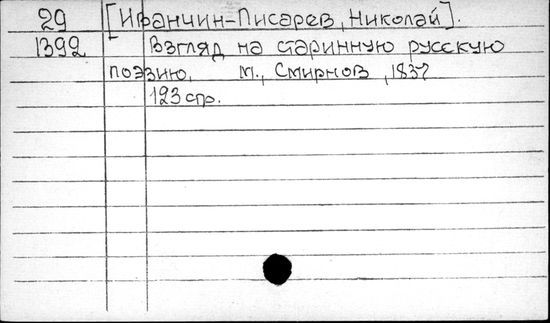 29 [Иванчин-Писарев, Николай].
1392 Взгляд на старинную русскую
поэзию, М., Смирнов, 1837
123 стр.